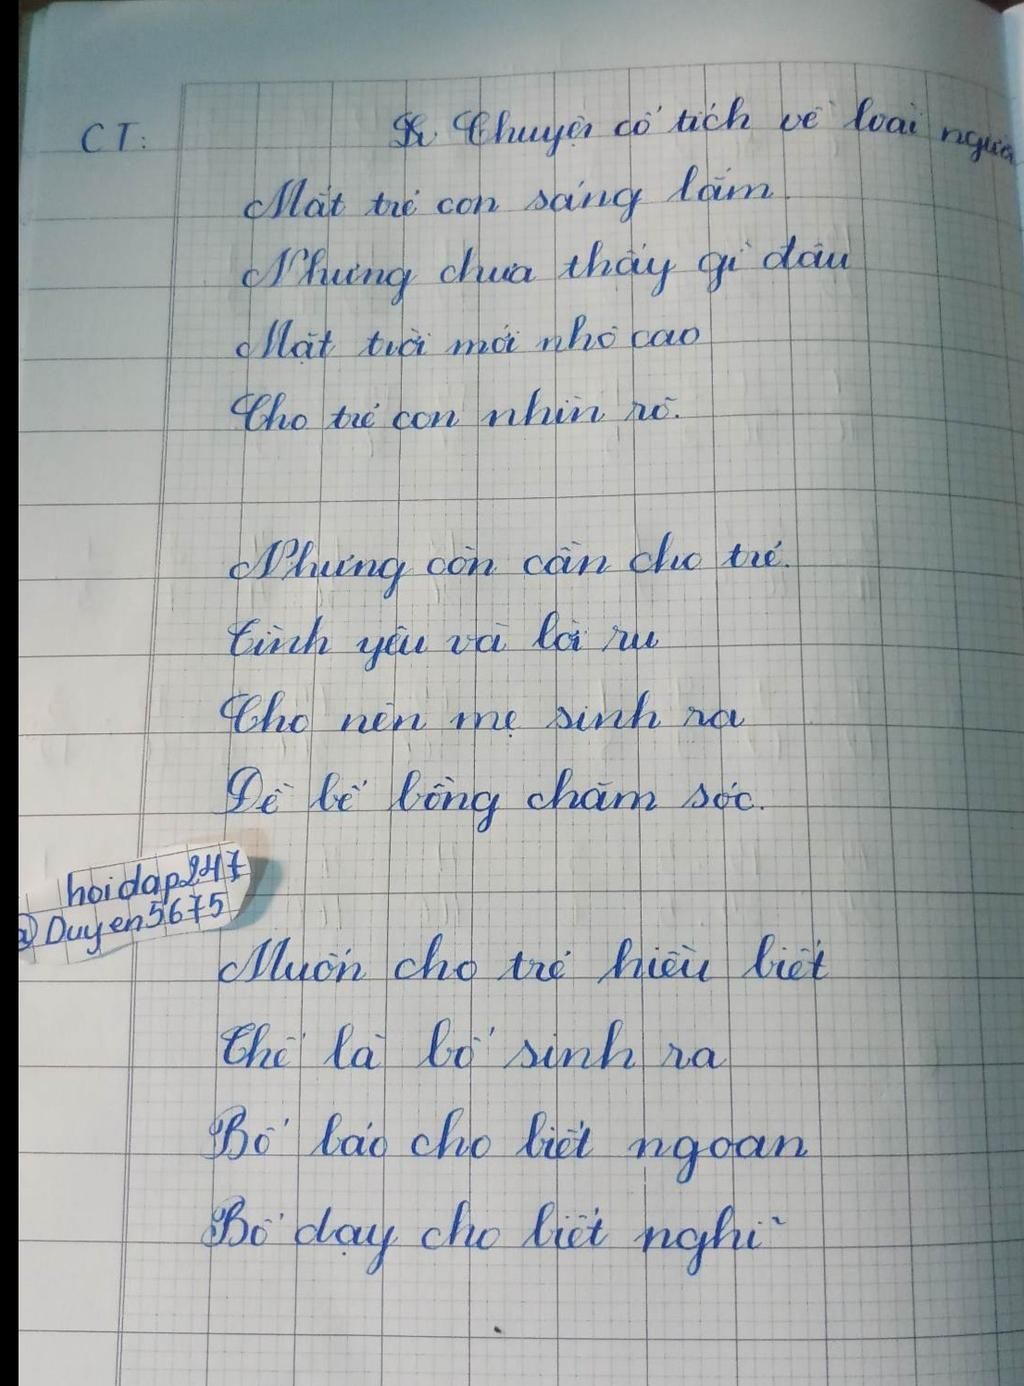 CT: Chuyện cổ tích về loài người
Mắt trẻ con sáng lắm
Nhưng chưa thấy gì đâu
Mặt trời mới nhô cao
Cho trẻ con nhìn rõ.
Nhưng còn cần cho trẻ.
Tình yêu và lời ru
Cho nên mẹ sinh ra
Để bế bồng chăm sóc.
hoidap247
@Duyen5675
Muốn cho trẻ hiểu biết
Thế là bố sinh ra
Bố bảo cho biết ngoan
Bố dạy cho biết nghĩ